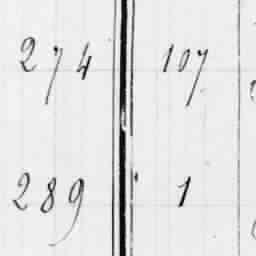 274 107
289 1